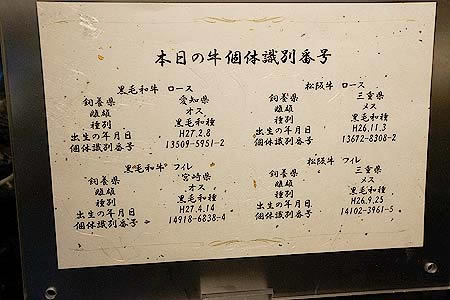 本日の牛個体識別番号
黒毛和牛 ロース
飼養県 愛知県
雌雄 オス
種別 黒毛和種
出生の年月日 H27.2.8
個体識別番号 13509-5951-2
松阪牛 ロース
飼養県 三重県
雌雄 メス
種別 黒毛和種
出生の年月日 H26.11.3
個体識別番号 13672-8308-2
黒毛和牛 フィレ
飼養県 宮崎県
雌雄 オス
種別 黒毛和種
出生の年月日 H27.4.14
個体識別番号 14918-6838-4
松阪牛 フィレ
飼養県 三重県
雌雄 メス
種別 黒毛和種
出生の年月日 H26.9.25
個体識別番号 14102-3961-5